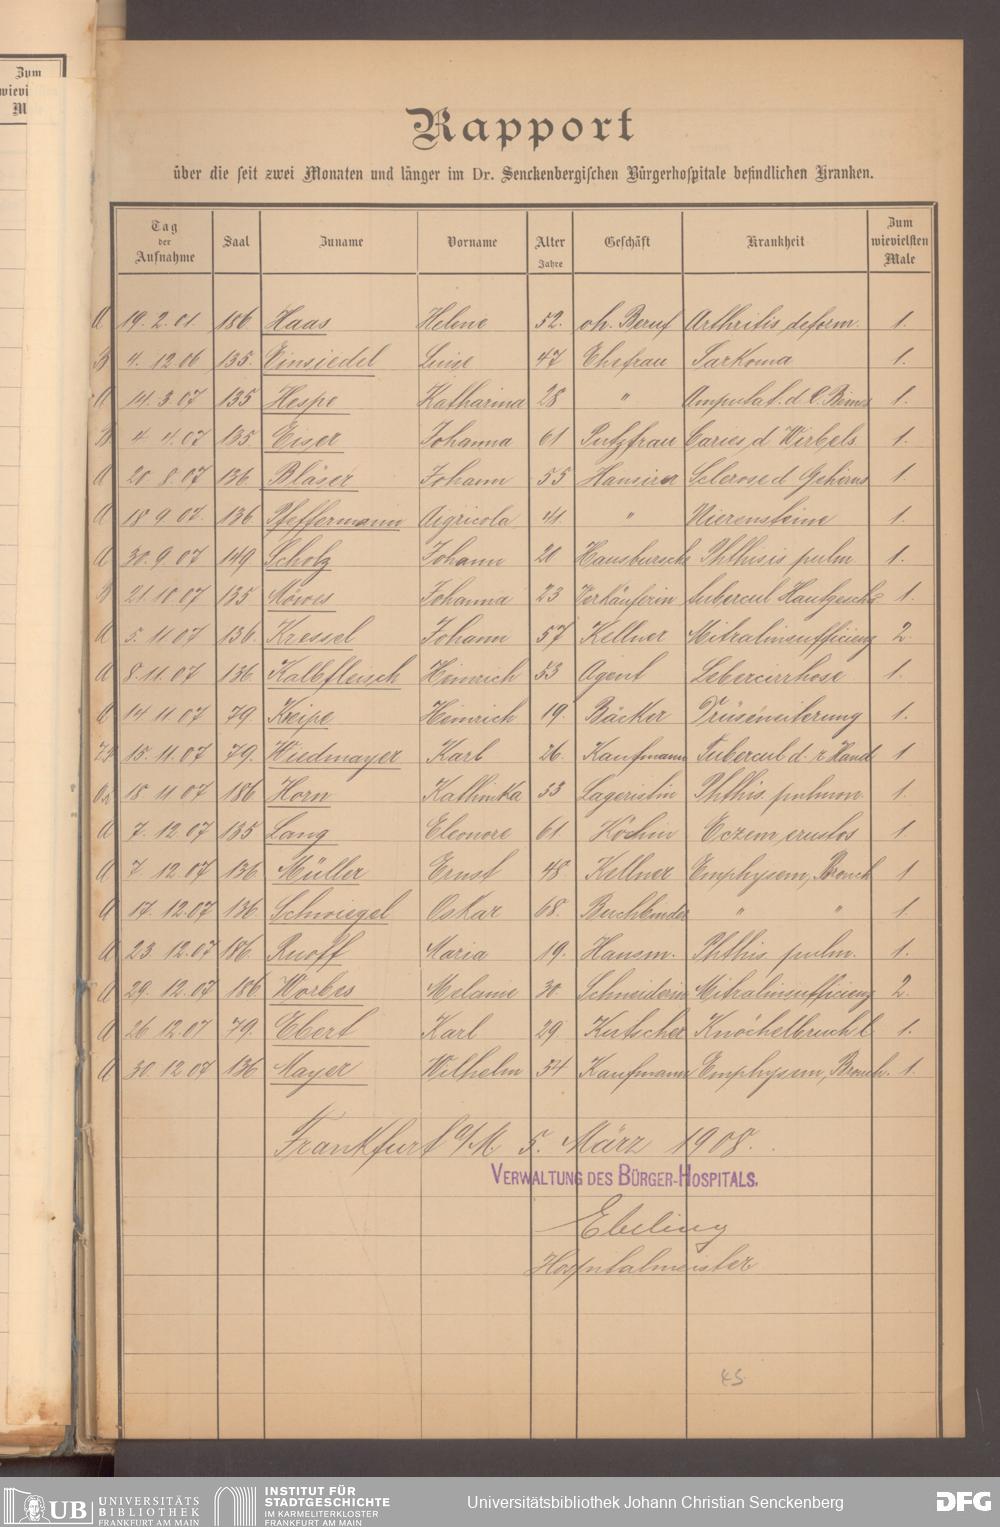 Zum
Rapport
über die seit zwei Monaten und länger im Dr. Senckenbergischen Bürgerhospitale befindlichen Kranken.
Tag der Aufnahme Saal Zuname Vorname Alter Jahre Geschäft Krankheit Zum wievielsten Male
A 19. 2. 01. 186 Haas Helene 52. oh. Beruf Arthritis deform. 1.
B 4. 12 06 135. Einsiedel Luise 47 Ehefrau Sarkoma 1.
A 14. 3. 07 135 Hespe Katharina 28 " Amputat. d. l. Beines 1.
B 4. 4. 07 135 Eiser Johanna 61 Putzfrau Caries d Wirbels 1.
A 20. 8. 07 136 Bläser Johann 55 Hausirer Sclerose d Gehirns 1.
A 18 9. 07. 136. Pfeffermann Agricola 41. " Nierensteine 1.
A 30. 9. 07 149 Scholz Johann 20 Hausbursche Phthisis pulm 1.
B 21 10 07 135 Johanna 23 Verkäuferin tubercul Hautgesch 1.
A 5. 11 07 136. Kressel Johann 57 Kellner Mitralinsufficienz 2.
A 8. 11. 07 136 Kalbfleisch Heinrich 53 Agent Lebercirrhose 1.
A 14 11 07 79 Kneipe Heinrich 19. Bäcker Drüseneiterung 1.
15. 11. 07 79. Wiedmayer Karl 26. Kaufmann Tubercul d. r Hand 1
18 11 07 186 Horn Kathinka 53 Lageristin Phthis. pulmon. 1.
A 7. 12 07 135 Lang Eleonore 61. Köchin Eczem crustos 1
A 7. 12 07 136 Müller Ernst 48. Kellner Emphysem, Bronch 1
A 17. 12. 07 136 Schwiegel Oskar 68. Buchbinder " " 1.
A 23. 12. 07 186. Ruoff Maria 19. Hausm. Phthis. pulm. 1.
A 29. 12. 07 186 Worbes Melanie 30. Schneiderin Mitralinsufficienz 2.
A 26 12. 07 79. Ebert Karl 29 Kutscher Knöchelbruch l 1.
A 30. 12 07 136 Mayer Wilhelm 54 Kaufmann Emphysem, Bronch. 1.
Frankfurt a/M. 5. März 1908.
VERWALTUNG DES BÜRGER-HOSPITALS.
Ebeling
Hospitalmeister
45.
UB UNIVERSITÄTS
BIBLIOTHEK
FRANKFURT AM MAIN
INSTITUT FÜR
STADTGESCHICHTE
IM KARMELITERKLOSTER
FRANKFURT AM MAIN
Universitätsbibliothek Johann Christian Senckenberg
DFG